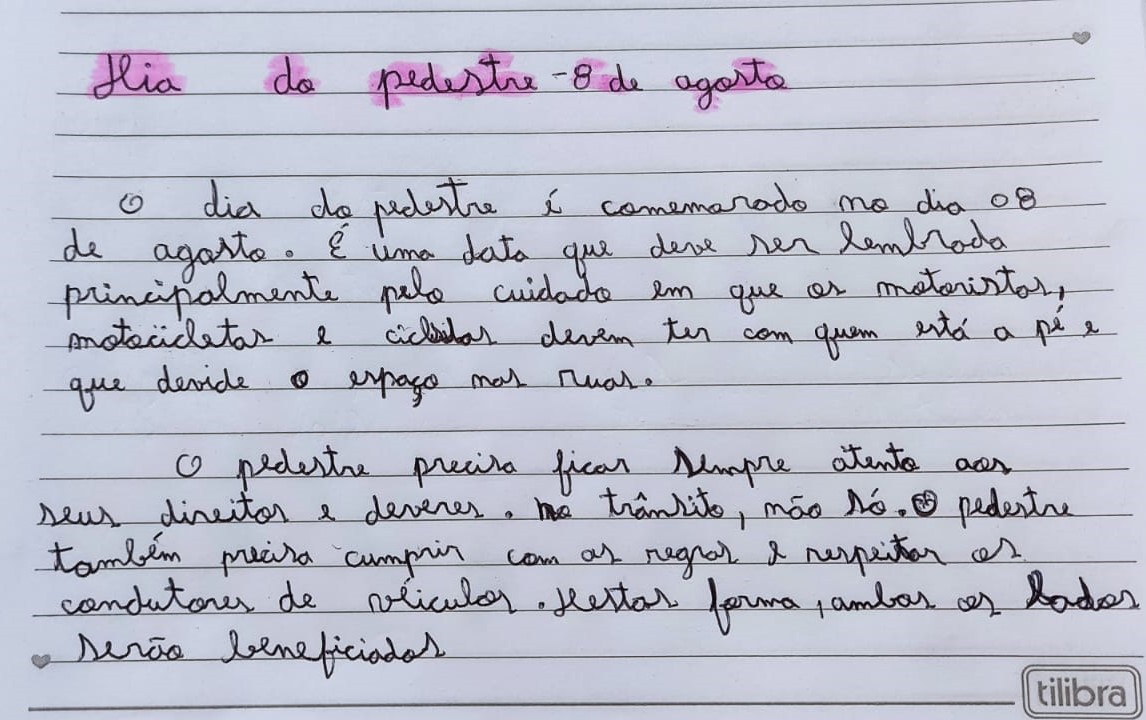 Dia do pedestre - 8 de agosto
O dia do pedestre é comemorado no dia 08
de agosto. É uma data que deve ser lembrada
principalmente pelo cuidado em que os motoristas,
motocicletas e ciclistas devem ter com quem está a pé e
que devide o espaço nas ruas.
O pedestre precisa ficar sempre atento aos
seus direitos e deveres. no trânsito, não só. O pedestre
também precisa cumprir com as regras e respeitar os
condutores de véiculos. Destas forma, ambos os lados
serão beneficiados
tilibra